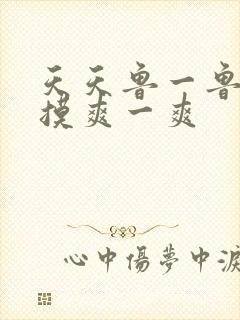 天天鲁一鲁
摸爽一爽
心中傷夢中淚